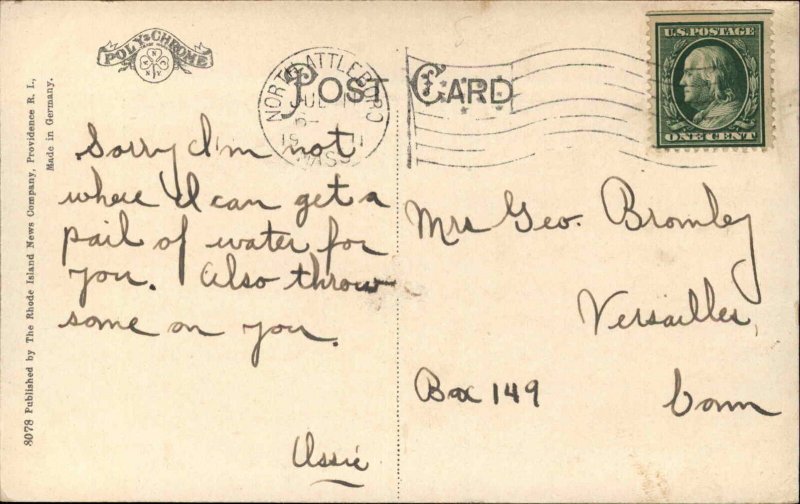 POLY-CHROME
POST CARD
NORTH ATTLEBORO
JUL
MASS.
U.S. POSTAGE
ONE CENT
8078 Published by The Rhode Island News Company, Providence R. I.,
Made in Germany.
Sorry I'm not
where I can get a
pail of water for
you. Also throw
some on you.
Ossie
Mrs Geo. Bromley
Versailles,
Box 149
Conn